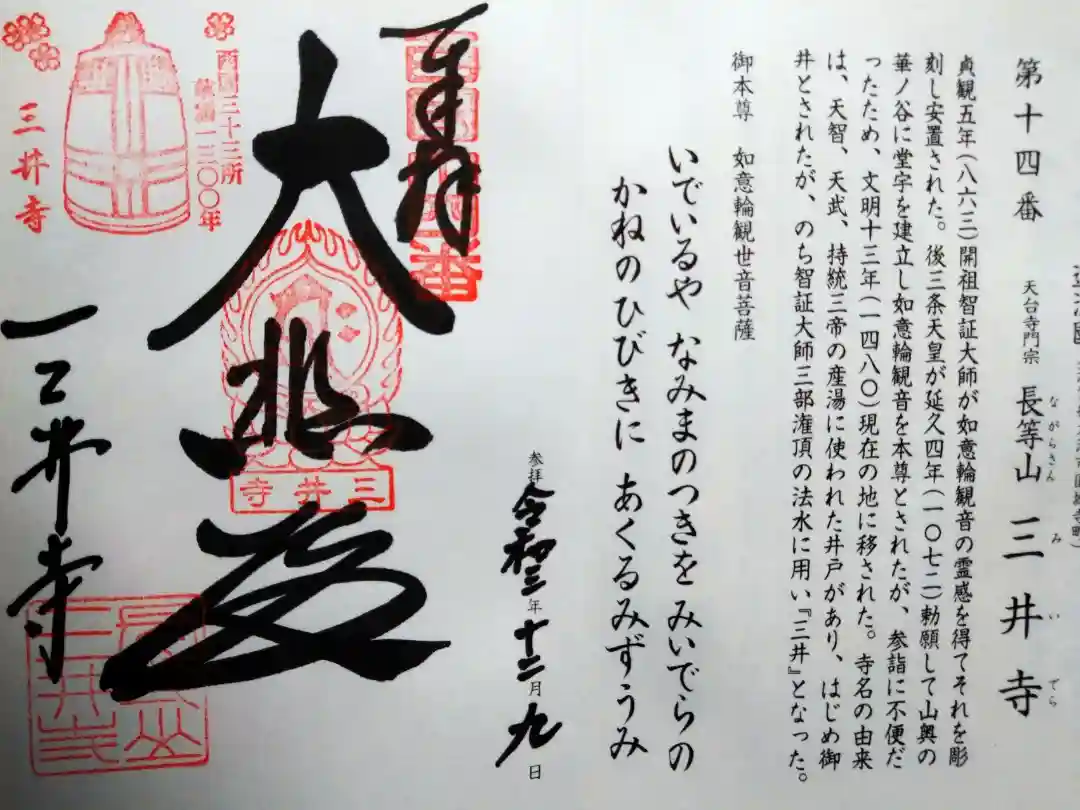 第十四番 天台寺門宗 長等山 三井寺
ながらさん みいでら
貞観五年(八六三)開祖智証大師が如意輪観音の霊感を得てそれを彫
刻し安置された。後三条天皇が延久四年(一〇七二)勅願して山興の
華ノ谷に堂宇を建立し如意輪観音を本尊とされたが、参詣に不便だ
ったため、文明十三年(一四八〇)現在の地に移された。寺名の由来
は、天智、天武、持統三帝の産湯に使われた井戸があり、はじめ御
井とされたが、のち智証大師三部潅頂の法水に用い『三井』となった。
御本尊 如意輪観世音菩薩
いでいるや なみまのつきを みいでらの
かねのひびきに あくるみずうみ
参拝 令和三年十二月九日
奉拝
大悲殿
三井寺
三井寺
西国三十三所
草創一三〇〇年
三井寺